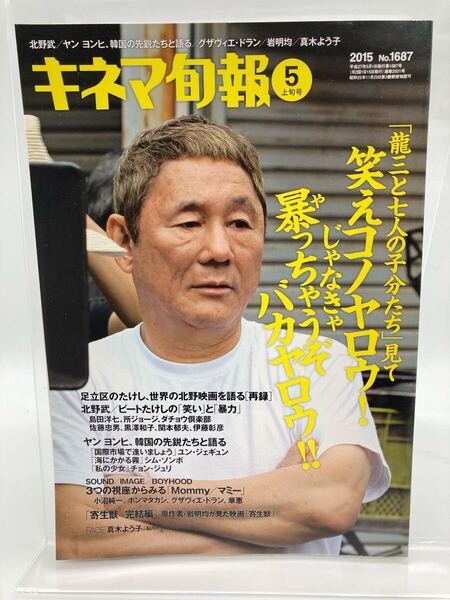 北野武/ヤン ヨンヒ、韓国の先鋭たちと語る/グザヴィエ・ドラン/岩明均/真木よう子
キネマ旬報
5
上旬号
2015 No.1687
「龍三と七人の子分たち」見て
笑えコノヤロウ!
じゃなきゃ
暴っちゃうぞ
や
バカヤロウ!!
足立区のたけし、世界の北野映画を語る[再録]
北野武/ビートたけしの「笑い」と「暴力」
島田洋七、所ジョージ、ダチョウ倶楽部
佐藤忠男、黒澤和子、関本郁夫、伊藤彰彦
ヤン ヨンヒ、韓国の先鋭たちと語る
「国際市場で逢いましょう」ユン・ジェギュン
「海にかかる霧」シム・ソンボ
「私の少女」チョン・ジュリ
SOUND/IMAGE/BOYHOOD
3つの視座からみる「Mommy/マミー」
小沼純一、ホンマタカシ、グザヴィエ・ドラン、華恵
「寄生獣 完結編」原作者・岩明均が見た映画「寄生獣」
FACE 真木よう子